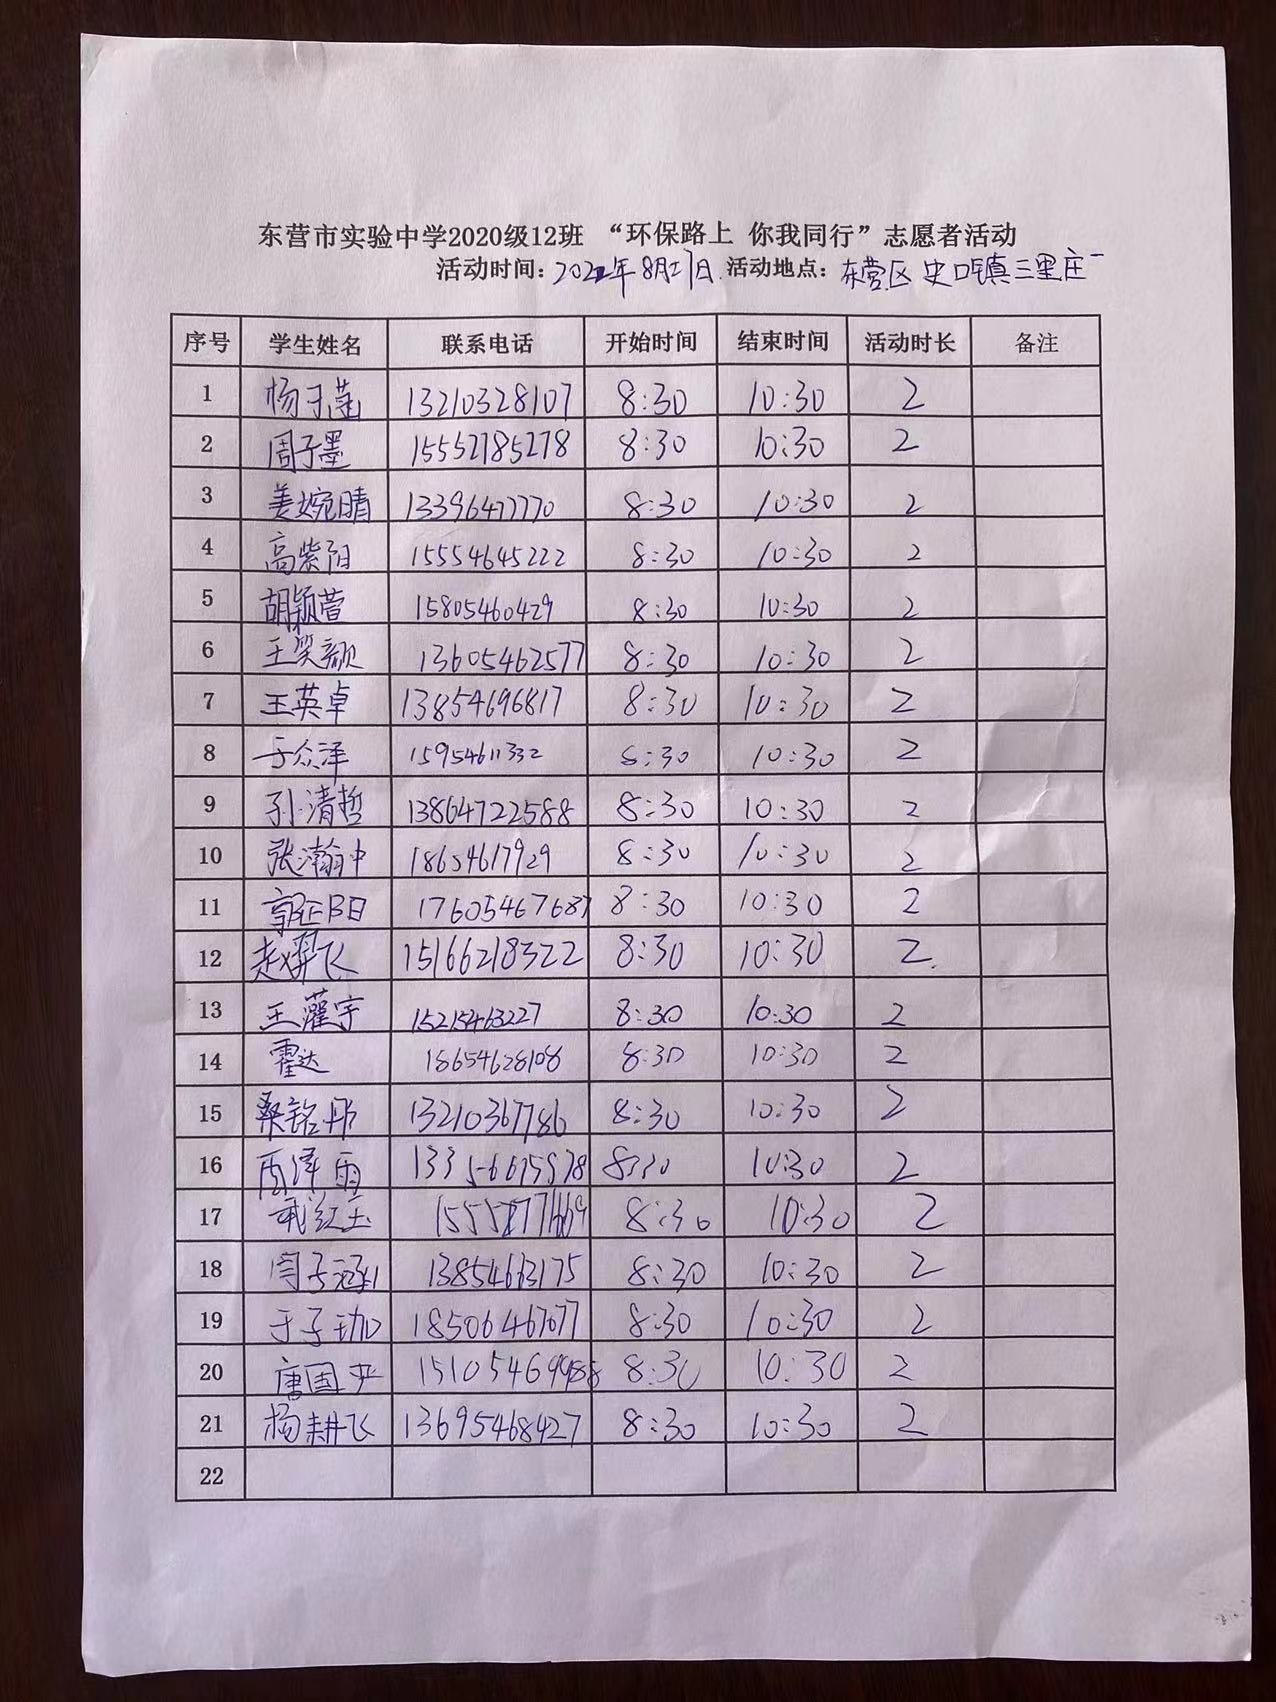 东营市实验中学2020级12班 “环保路上 你我同行”志愿者活动
活动时间：2022年8月27日 活动地点：东营区 史口镇三里庄
序号 学生姓名 联系电话 开始时间 结束时间 活动时长 备注
1 杨于莲 13210328107 8:30 10:30 2
2 周子墨 15552785278 8:30 10:30 2
3 姜婉晴 13396477770 8:30 10:30 2
4 高紫阳 15554645222 8:30 10:30 2
5 胡颖萱 15805460429 8:30 10:30 2
6 王笑颜 13605462577 8:30 10:30 2
7 王英卓 13854696817 8:30 10:30 2
8 于众泽 15954611332 8:30 10:30 2
9 孙清哲 13864722588 8:30 10:30 2
10 张瀚中 18654617929 8:30 10:30 2
11 郭正阳 17605467687 8:30 10:30 2
12 赵翼飞 15166218322 8:30 10:30 2
13 王灌宇 15215463227 8:30 10:30 2
14 霍达 18654628108 8:30 10:30 2
15 桑铭彤 13210367786 8:30 10:30 2
16 周泽雨 8:30 10:30 2
17 武红玉 8:30 10:30 2
18 闫子涵 13854663175 8:30 10:30 2
19 于子珈 18506467077 8:30 10:30 2
20 唐国 15105469988 8:30 10:30 2
21 杨耕飞 13695468427 8:30 10:30 2
22